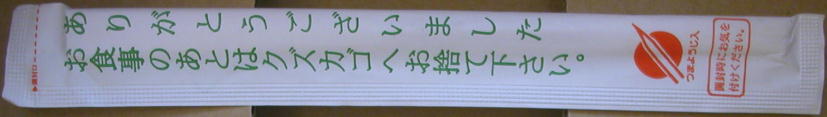 ありがとうございました
お食事のあとはクズカゴへお捨て下さい。
つまようじ入
開封時にお気を
付けください。
開封口